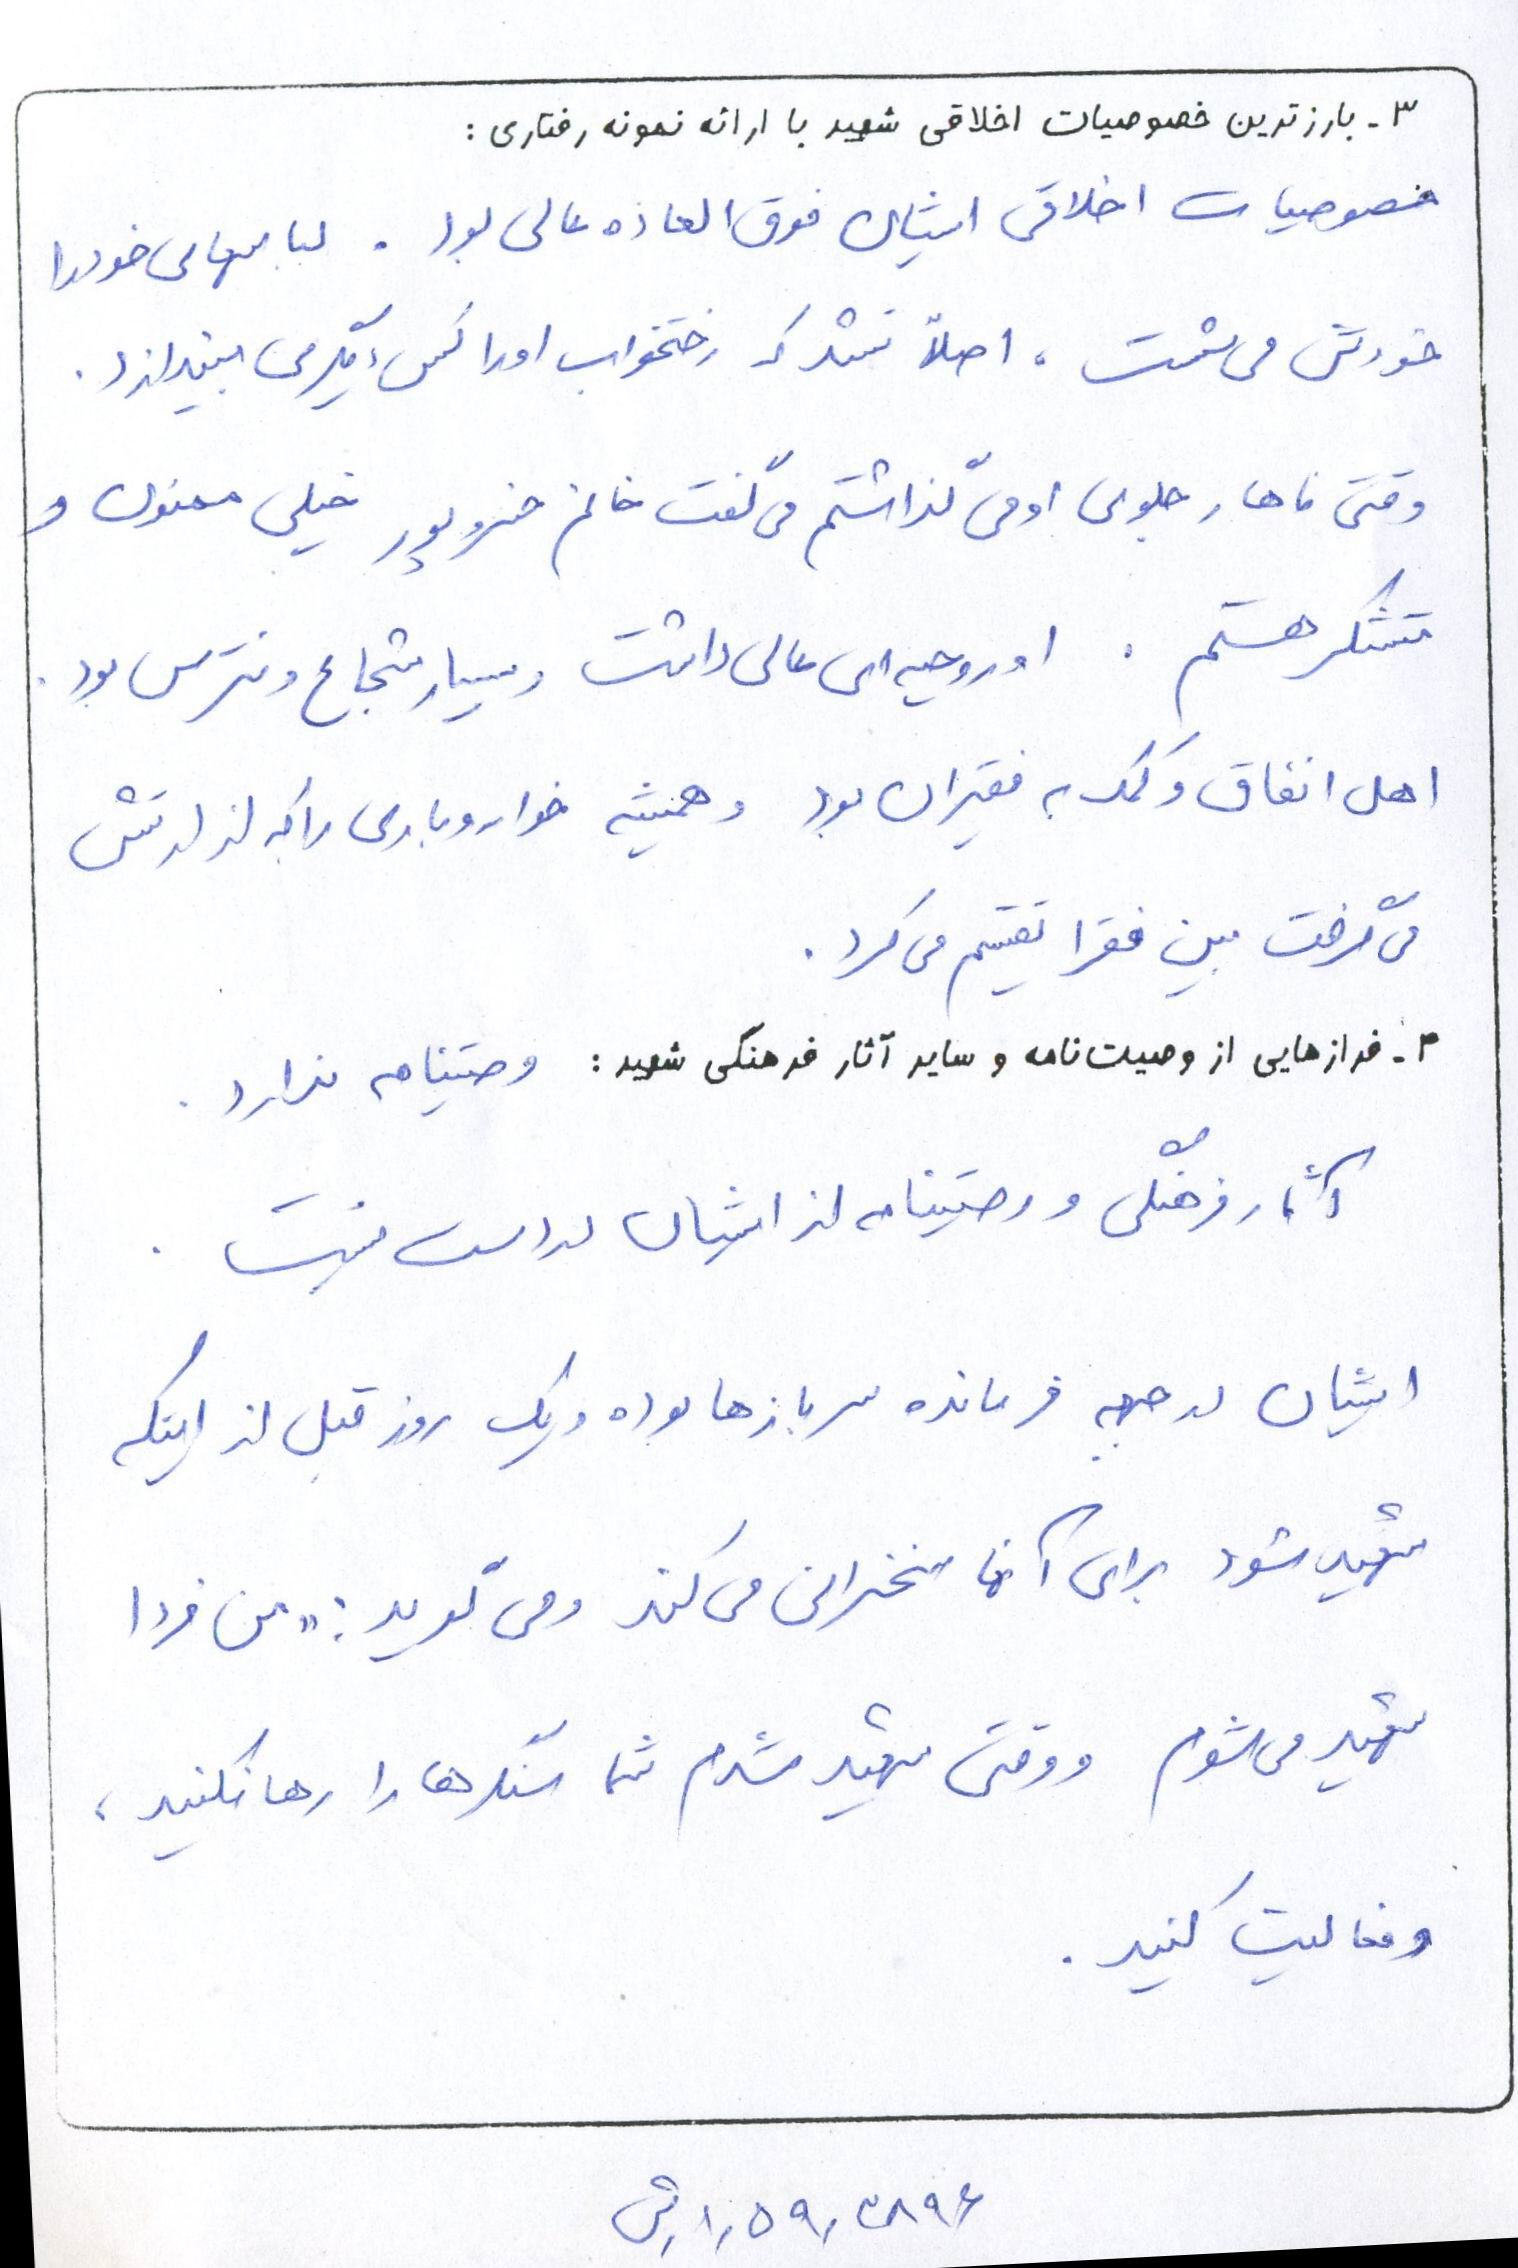 ۳ - بارزترین خصوصیات اخلاقی شهید با ارائه نمونه رفتاری :
خصوصیات اخلاقی ایشان فوق العاده عالی بود . لباسهای خود را
خودش می شست . اصلاً نشد که رختخواب او را کس دیگری بیندازد .
وقتی ناهار جلوی او می گذاشتم می گفت خانم خسروپور خیلی ممنون و
متشکر هستم . او روحیه ای عالی داشت و بسیار شجاع و نترس بود .
اهل انفاق و کمک به فقیران بود و همیشه خواروباری را که از ارتش
می گرفت بین فقرا تقسیم می کرد .
۴ - فرازهایی از وصیت نامه و سایر آثار فرهنگی شهید : وصیتنامه ندارد .
آثار فرهنگی و وصیتنامه از ایشان در دست نیست .
ایشان در جبهه فرمانده سربازها بوده و یک روز قبل از اینکه
شهید شود برای آنها سخنرانی می کند و می گوید : « من فردا
شهید می شوم و وقتی شهید شدم شما سنگرها را رها نکنید ،
و فعالیت کنید .